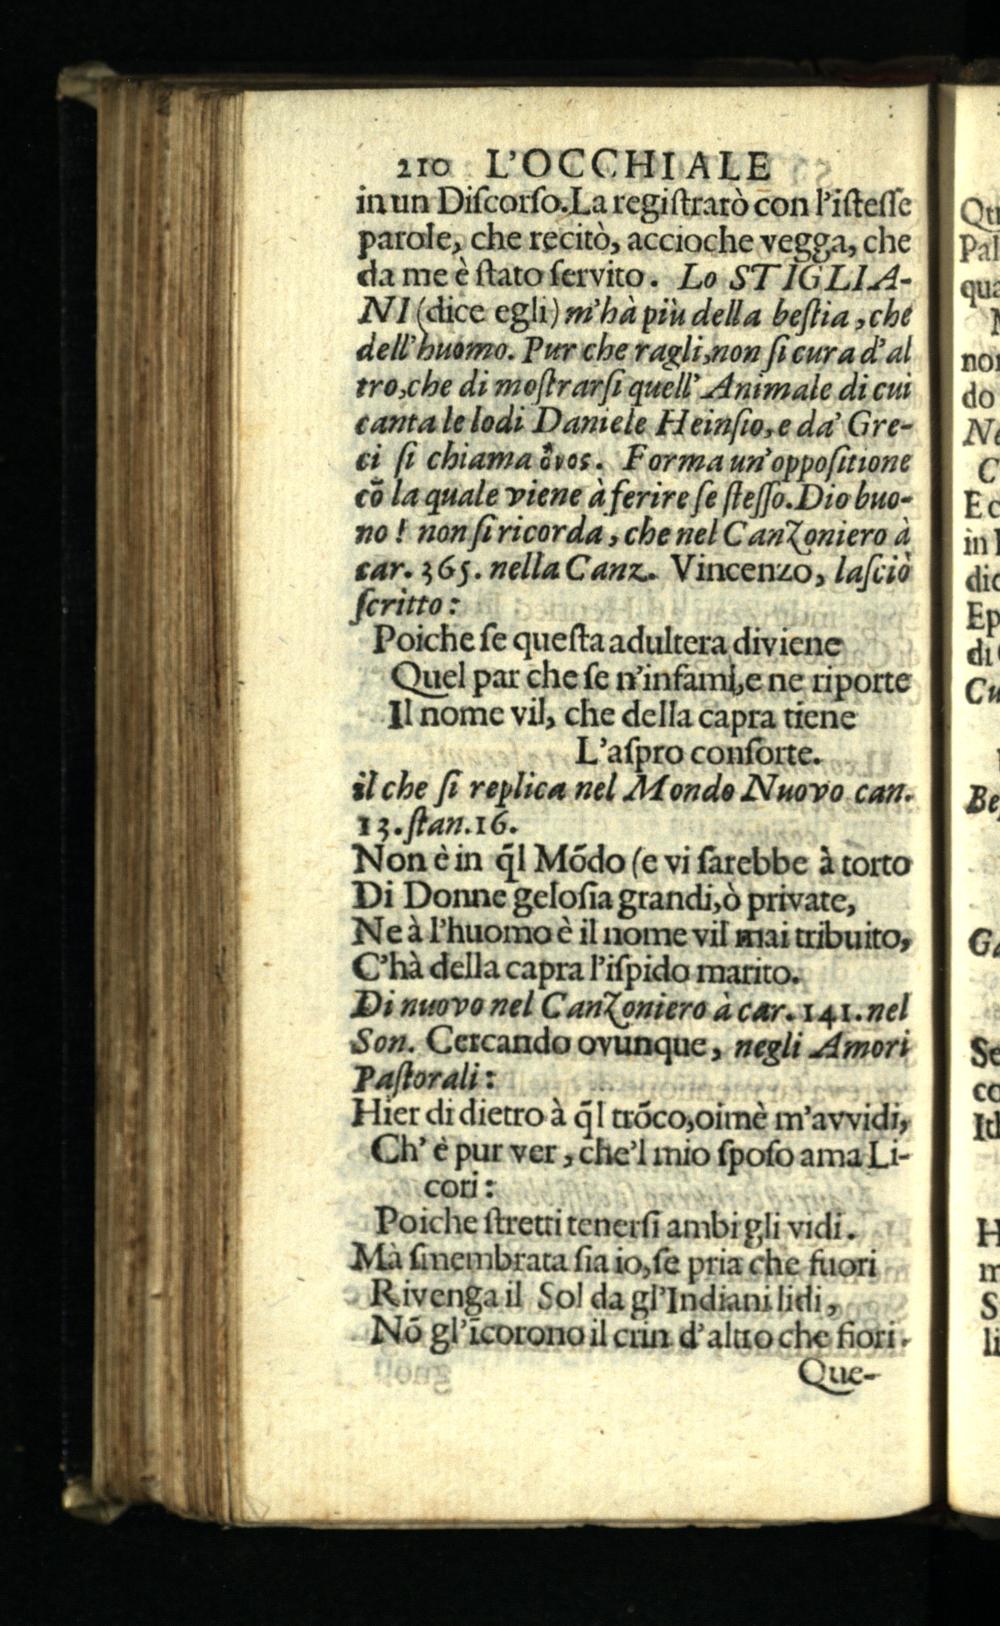 210 L'OCCHIALE
in un Diſcorſo.La regiſtrarò con l'iſteſſe
parole, che recitò, accioche vegga, che
da me è ſtato ſervito. Lo STIGLIA-
NI (dice egli) m'hà più della beſtia, che
dell'huomo. Pur che ragli,non ſi cura d'al
tro,che di moſtrarſi quell'Animale di cui
canta le lodi Daniele Heinſio,e da' Gre-
ci ſi chiama ὄνος. Forma un'oppoſitione
cō la quale viene à ferire ſe ſteſſo. Dio buo-
no! non ſi ricorda, che nel Canzoniero à
car. 365. nella Canz. Vincenzo, laſciò
ſcritto:
Poiche ſe queſta adultera diviene
Quel par che ſe n'infami,e ne riporte
Il nome vil, che della capra tiene
L'aſpro conſorte.
il che ſi replica nel Mondo Nuovo can.
13.ſtan.16.
Non è in q̄l Mōdo (e vi ſarebbe à torto
Di Donne geloſia grandi,ò private,
Ne à l'huomo è il nome vil mai tribuito,
C'hà della capra l'iſpido marito.
Di nuovo nel Canzoniero à car. 141. nel
Son. Cercando ovunque, negli Amori
Paſtorali:
Hier di dietro à q̄l trōco,oimè m'avvidi,
Ch'è pur ver, che'l mio ſpoſo ama Li-
cori:
Poiche ſtretti tenerſi ambi gli vidi.
Mà ſmembrata ſia io,ſe pria che fuori
Rivenga il Sol da gl'Indiani lidi,
Nō gl'īcorono il crin d'altro che fiori.
Que-
Qu
Pal
qua
nor
do
Ne
C
E c
in
dic
Ep
di
Cu
Be
Ga
Se
co
Itl
H
m
S
li